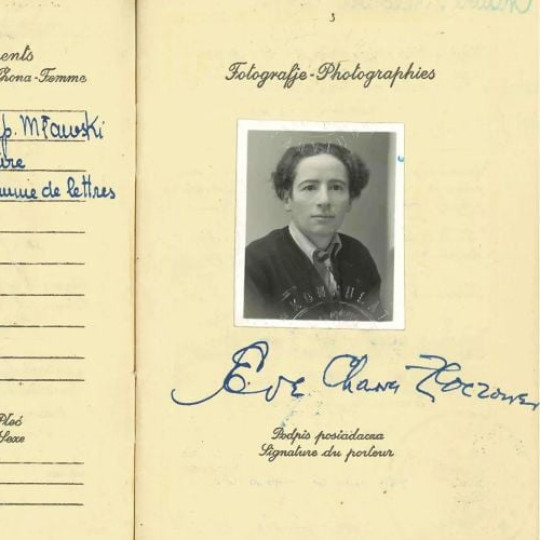 ents
Żona-Femme
p. Mławski
ire
femme de lettres
Płeć
Sexe
3
Fotografje-Photographies
Eve Chawa Zloczower
Podpis posiadacza
Signature du porteur